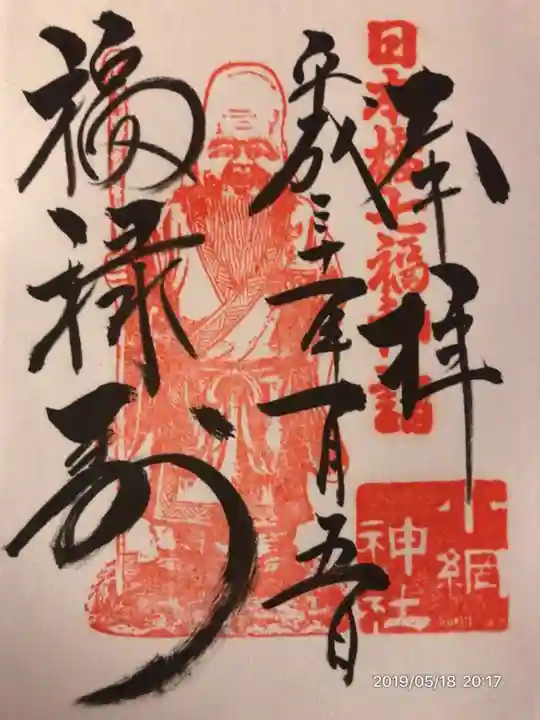 奉拝
日本橋七福神詣
小網
神社
平成三十一年一月五日
福禄寿
2019/05/18 20:17